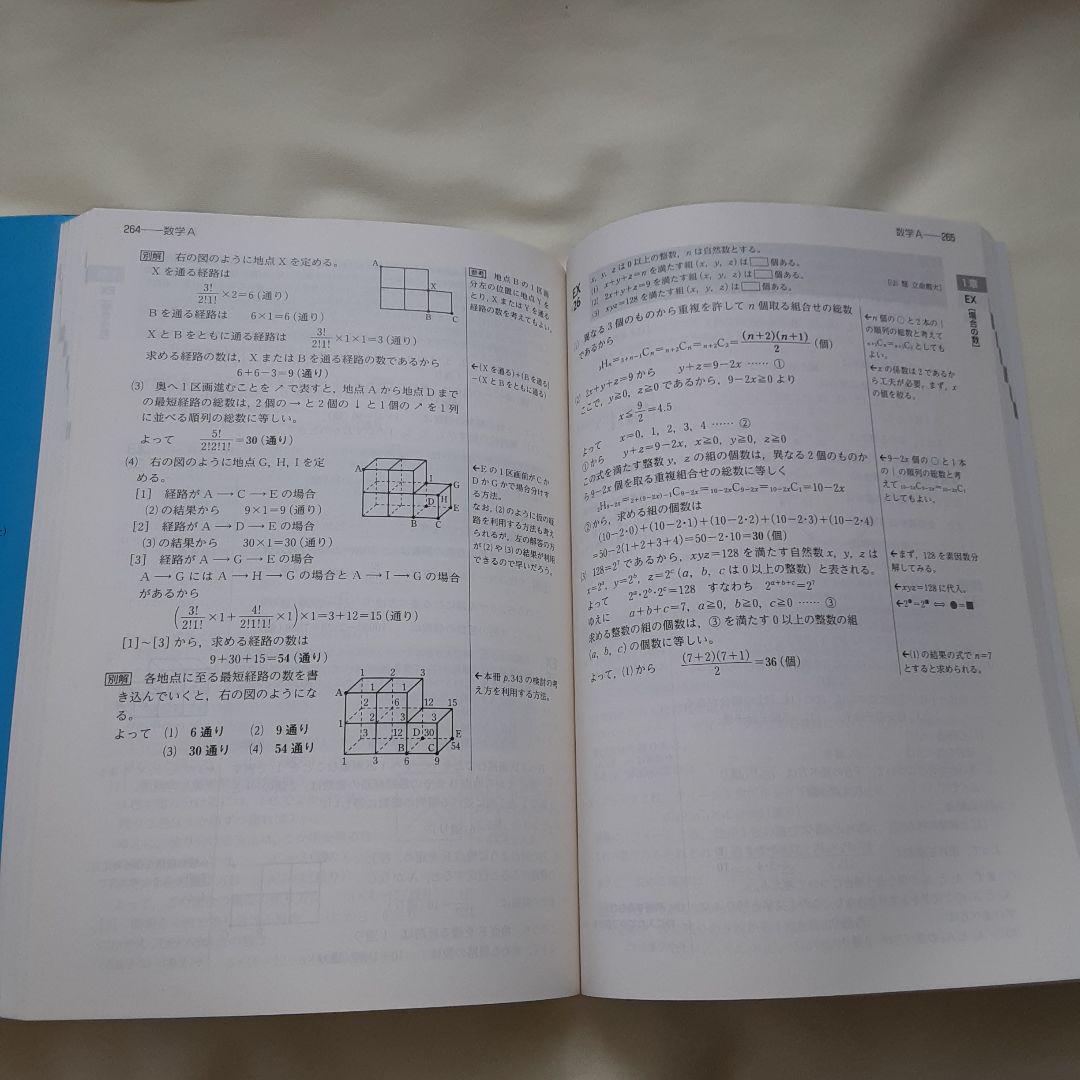 264——数学A
別解 右の図のように地点Xを定める。
Xを通る経路は
3!/2!1!×2=6(通り)
Bを通る経路は 6×1=6(通り)
XとBをともに通る経路は 3!/2!1!×1×1=3(通り)
求める経路の数は，XまたはBを通る経路の数であるから
6+6-3=9(通り)
(3) 奥へ1区画進むことを↗で表すと，地点Aから地点Dまで
の最短経路の総数は，2個の→と2個の↓と1個の↗を1列
に並べる順列の総数に等しい。
よって 5!/2!2!1!=30(通り)
(4) 右の図のように地点G，H，Iを定
める。
[1] 経路がA→C→Eの場合
(2)の結果から 9×1=9(通り)
[2] 経路がA→D→Eの場合
(3)の結果から 30×1=30(通り)
[3] 経路がA→G→Eの場合
A→GにはA→H→Gの場合とA→I→Gの場合
があるから
(3!/2!1!×1+4!/2!1!1!×1)×1=3+12=15(通り)
[1]～[3]から，求める経路の数は
9+30+15=54(通り)
別解 各地点に至る最短経路の数を書
き込んでいくと，右の図のようにな
る。
よって (1) 6通り (2) 9通り
(3) 30通り (4) 54通り
A
X
B C
I
G
H
D
E
B C
1 2 3
A 1 1
2 6 12 15
1 2 3 3
3 12 D 30 E
B C 54
1 3 6 9
参考 地点Bの1区画
分左の位置に地点Yを
とり，XまたはYを通る
経路の数を考えてもよい。
←(Xを通る)+(Bを通る)
-(XとBをともに通る)
←Eの1区画前がCか
DかGかで場合分けす
る方法。
なお，(2)のように仮の経
路を利用する方法も考え
られるが，左の解答の方
が(2)や(3)の結果が利用
できるので早いだろう。
←本冊p.343の検討の考
え方を利用する方法。
数学A——265
EX
26
x，y，zは0以上の整数，nは自然数とする。
(1) x+y+z=nを満たす組(x，y，z)は□個ある。
(2) 2x+y+z=9を満たす組(x，y，z)は□個ある。
(3) xyz=128を満たす組(x，y，z)は□個ある。
立命館大]
(1) 異なる3個のものから重複を許してn個取る組合せの総数
であるから
₃Hₙ=₃₊ₙ₋₁Cₙ=ₙ₊₂Cₙ=ₙ₊₂C₂=(n+2)(n+1)/2(個)
(2) 2x+y+z=9から y+z=9-2x …… ①
ここで，y≧0，z≧0であるから，9-2x≧0より
x≦9/2=4.5
よって x=0，1，2，3，4 …… ②
①から y+z=9-2x，x≧0，y≧0，z≧0
この式を満たす整数y，zの組の個数は，異なる2個のものか
ら9-2x個を取る重複組合せの総数に等しく
₂H₉₋₂ₓ=₂₊₍₉₋₂ₓ₎₋₁C₉₋₂ₓ=₁₀₋₂ₓC₉₋₂ₓ=₁₀₋₂ₓC₁=10-2x
②から，求める組の個数は
(10-2・0)+(10-2・1)+(10-2・2)+(10-2・3)+(10-2・4)
=50-2(1+2+3+4)=50-2・10=30(個)
(3) 128=2⁷であるから，xyz=128を満たす自然数x，y，zは
x=2ᵃ，y=2ᵇ，z=2ᶜ(a，b，cは0以上の整数)と表される。
よって 2ᵃ・2ᵇ・2ᶜ=128 すなわち 2ᵃ⁺ᵇ⁺ᶜ=2⁷
ゆえに a+b+c=7，a≧0，b≧0，c≧0 …… ③
求める整数の組の個数は，③を満たす0以上の整数の組
(a，b，c)の個数に等しい。
よって，(1)から (7+2)(7+1)/2=36(個)
←n個の○と2本の|
の順列の総数と考えて
ₙ₊₂Cₙ=ₙ₊₂C₂としても
よい。
←xの係数は2であるか
ら工夫が必要。まず，x
の値を絞る。
←9-2x個の○と1本
の|の順列の総数と考
えて₁₀₋₂ₓC₉₋₂ₓ=₁₀₋₂ₓC₁
としてもよい。
←まず，128を素因数分
解してみる。
←xyz=128に代入。
←2●=2■ ⇔ ●=■
←(1)の結果の式でn=7
とすると求められる。
1章
EX
[場合の数]